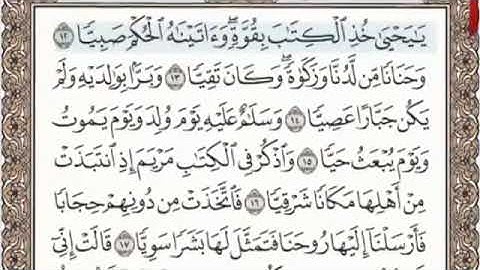 يَٰيَحْيَىٰ خُذِ ٱلْكِتَٰبَ بِقُوَّةٍۖ وَءَاتَيْنَٰهُ ٱلْحُكْمَ صَبِيًّا ١٢
وَحَنَانًا مِّن لَّدُنَّا وَزَكَوٰةًۖ وَكَانَ تَقِيًّا ١٣ وَبَرًّۢا بِوَٰلِدَيْهِ وَلَمْ
يَكُن جَبَّارًا عَصِيًّا ١٤ وَسَلَٰمٌ عَلَيْهِ يَوْمَ وُلِدَ وَيَوْمَ يَمُوتُ
وَيَوْمَ يُبْعَثُ حَيًّا ١٥ وَٱذْكُرْ فِى ٱلْكِتَٰبِ مَرْيَمَ إِذِ ٱنتَبَذَتْ
مِنْ أَهْلِهَا مَكَانًا شَرْقِيًّا ١٦ فَٱتَّخَذَتْ مِن دُونِهِمْ حِجَابًا
فَأَرْسَلْنَآ إِلَيْهَا رُوحَنَا فَتَمَثَّلَ لَهَا بَشَرًا سَوِيًّا ١٧ قَالَتْ إِنِّىٓ